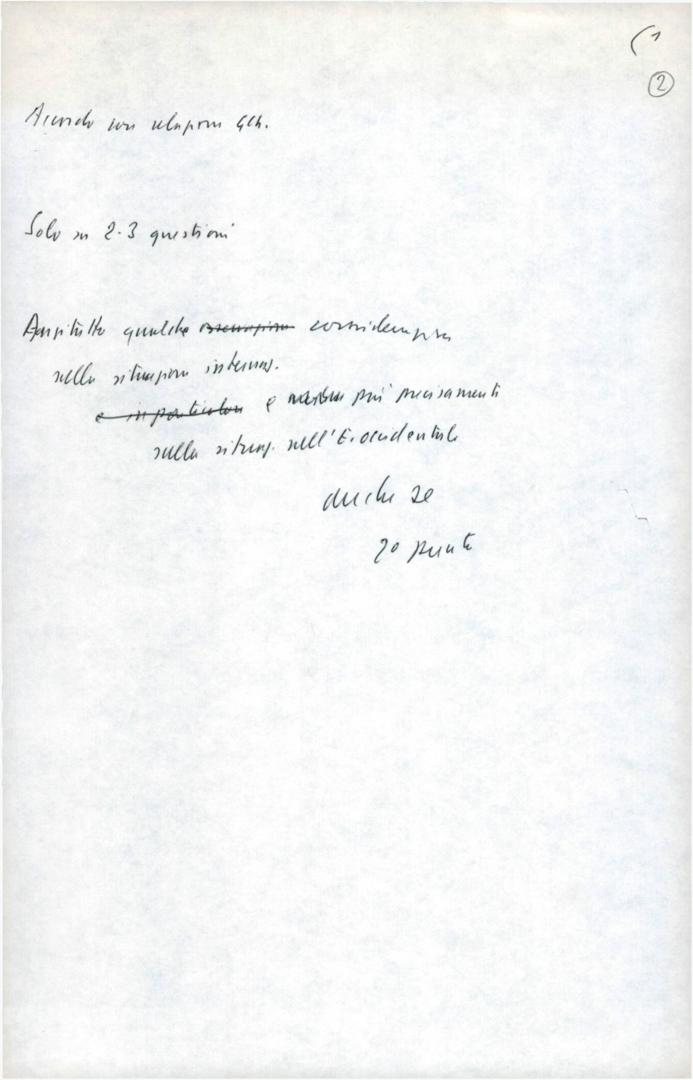 (1
2
Accordo con relazione GCP.
Solo su 2-3 questioni
Anzitutto qualche osservazione considerazione
sulla situazione internaz.
e in particolare e più precisamente
sulla situaz. nell'E. occidentale
anche se
20 punti